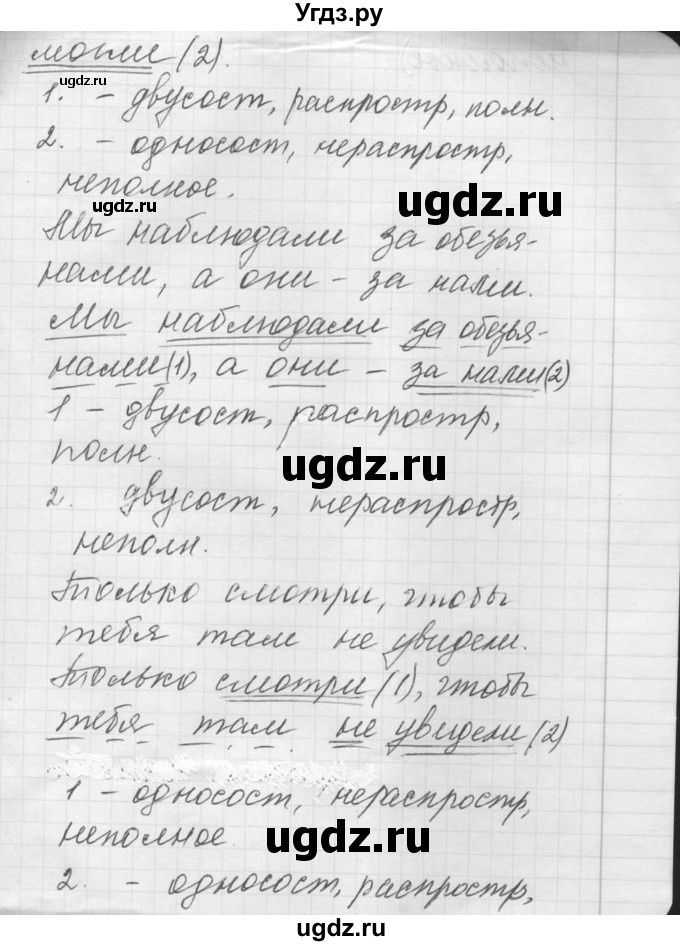 Угдз.ру
могли (2).
ugdz.ru
1. – двусост, распростр, полн.
ugdz.ru
2. – односост, нераспростр,
неполное.
ugdz.ru
ugdz.ru
Мы наблюдали за обезья-
нами, а они – за нами.
Мы наблюдали за обезья-
нами(1), а они – за нами(2)
1 – двусост, распростр,
полн.
ugdz.ru
2. двусост, нераспростр,
неполн.
Только смотри, чтобы
тебя там не увидели.
Только смотри (1), чтобы
тебя там не увидели (2)
1 – односост, нераспростр,
неполное.
ugdz.ru
2. – односост, распростр,
ugdz.ru